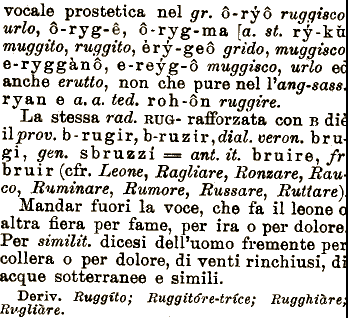 vocale prostetica nel gr. ô-rýô ruggisco
urlo, ô-ryg-ê, ô-ryg-ma [a. st. rý-kŭ
muggito, ruggito, èrý-geô grido, muggisco
e-ryggànô, e-reýg-ô muggisco, urlo ed
anche erutto, non che pure nel l'ang-sass.
ryan e a. a. ted. roh-ôn ruggire.
La stessa rad. RUG- rafforzata con B diè
il prov. b-rugir, b-ruzir, dial. veron. bru-
gi, gen. sbruzzí = ant. it. bruire, fr
bruir (cfr. Leone, Ragliare, Ronzare, Rau-
co, Ruminare, Rumore, Russare, Ruttare)
Mandar fuori la voce, che fa il leone o
altra fiera per fame, per ira o per dolore.
Per similit. dicesi dell'uomo fremente per
collera o per dolore, di venti rinchiusi, di
acque sotterranee e simili.
Deriv. Ruggíto; Ruggitóre-tríce; Rugghiàre;
Rugliàre.